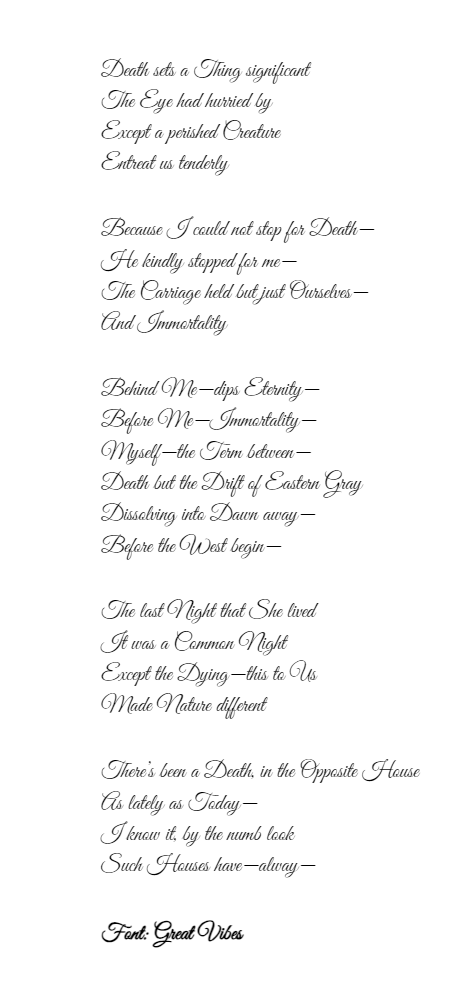 Death sets a Thing significant
The Eye had hurried by
Except a perished Creature
Entreat us tenderly
Because I could not stop for Death—
He kindly stopped for me—
The Carriage held but just Ourselves—
And Immortality
Behind Me—dips Eternity—
Before Me—Immortality—
Myself—the Term between—
Death but the Drift of Eastern Gray
Dissolving into Dawn away—
Before the West begin—
The last Night that She lived
It was a Common Night
Except the Dying—this to Us
Made Nature different
There's been a Death, in the Opposite House
As lately as Today—
I know it, by the numb look
Such Houses have—alway—
Font: Great Vibes